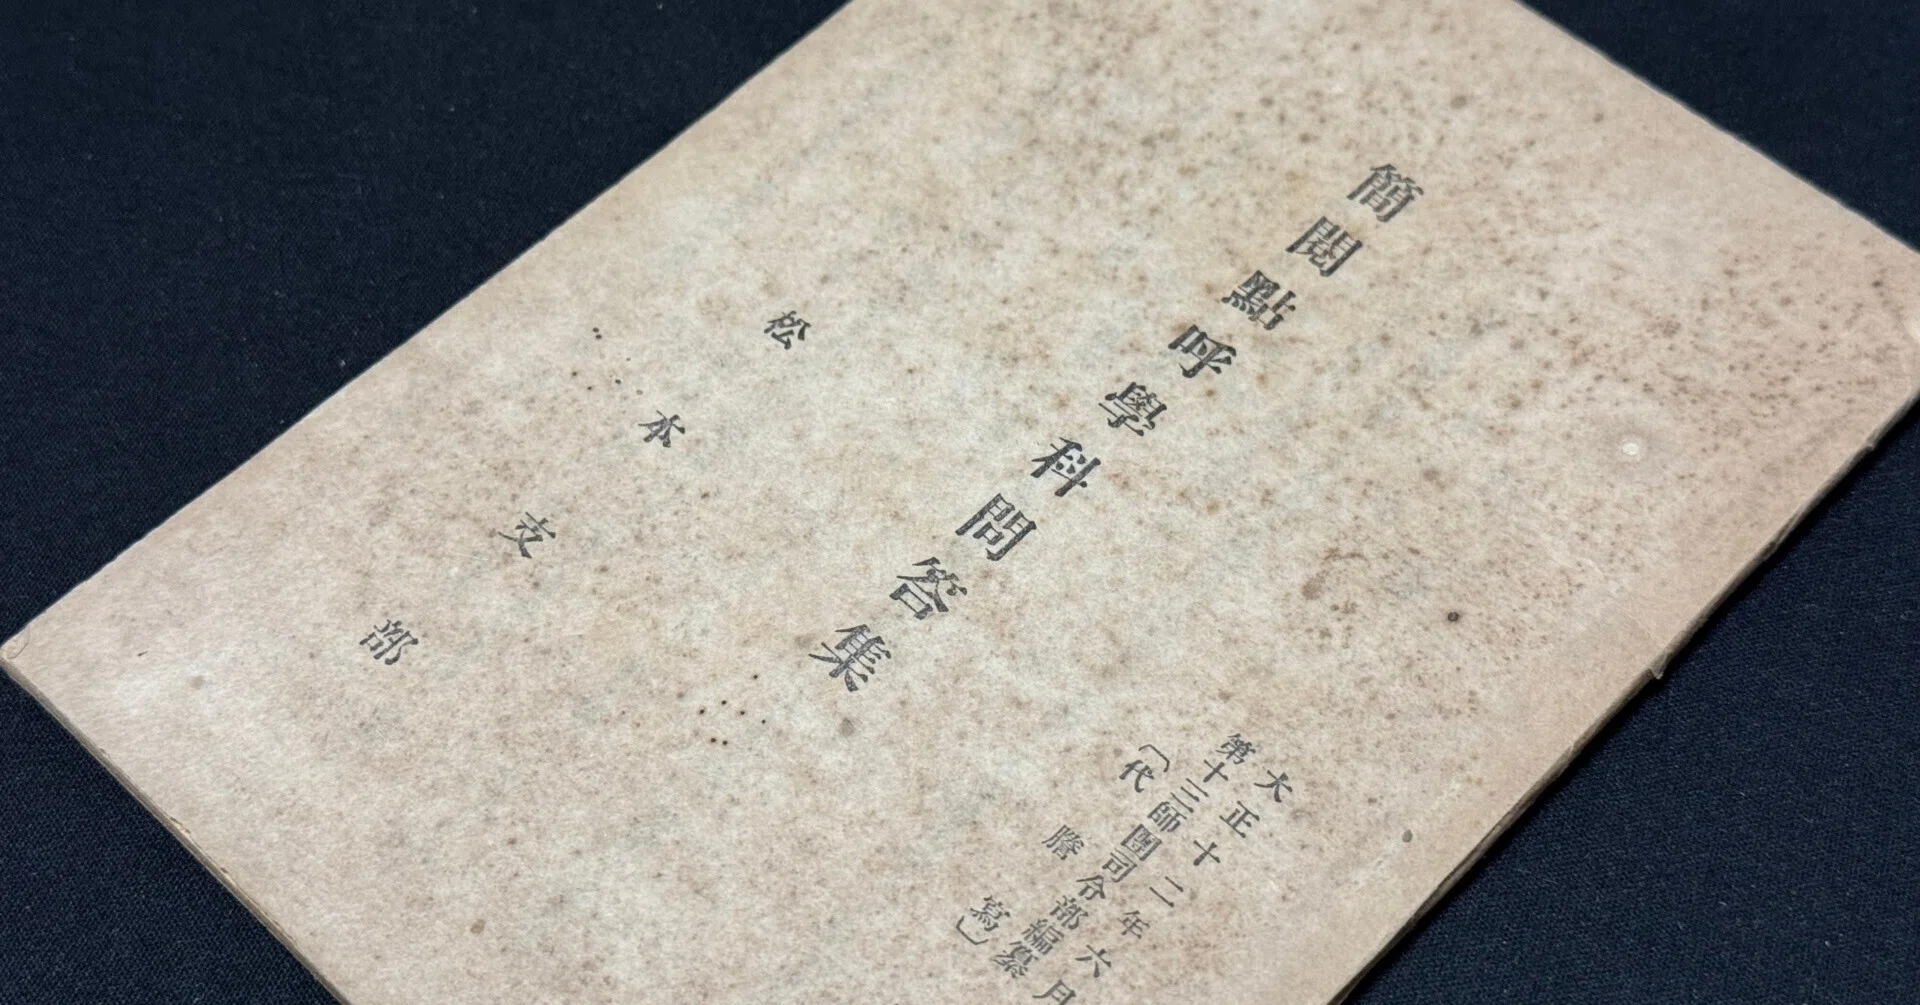 大正十二年六月
第十三師團司令部編纂
〔代謄寫〕
簡閲點呼學科問答集
松本支部